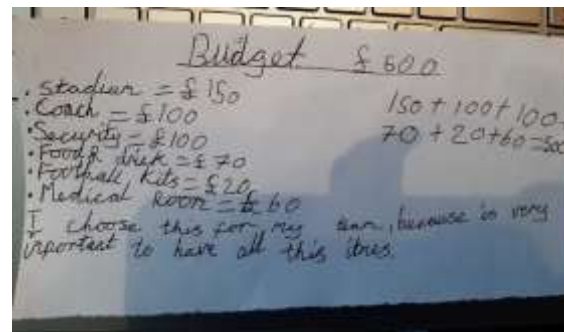 Budget £600
• Stadium = £150
• Coach = £100
• Security = £100
• Food & drink = £70
• Football kits = £20
• Medical Room = £60
150 + 100 + 100 +
70 + 20 + 60 = 500
I choose this for my team, because is very
important to have all this items.